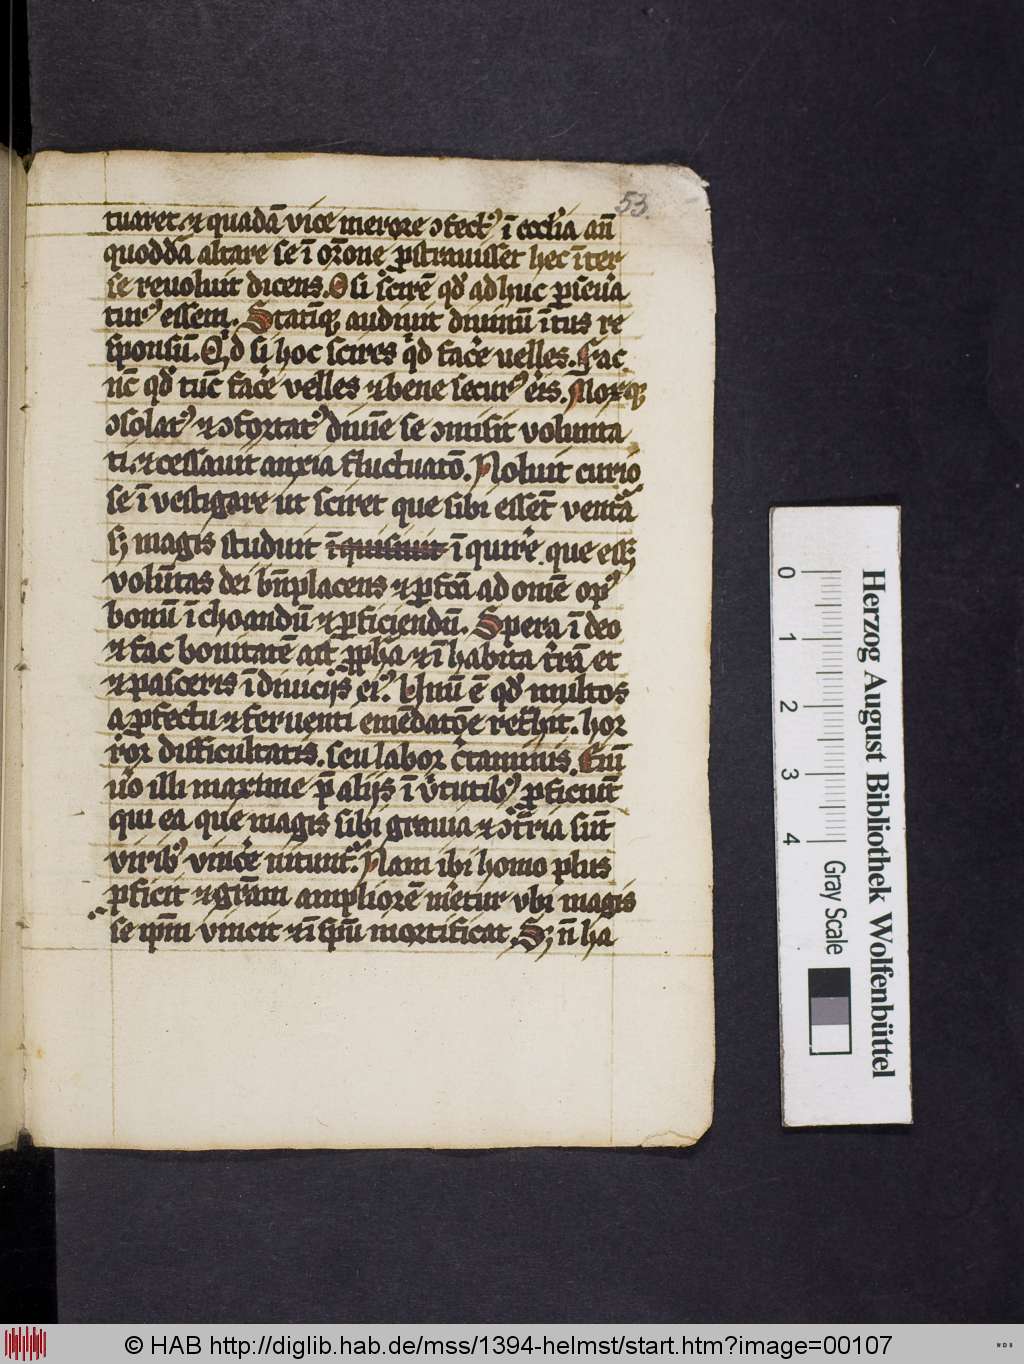 53
tuaret. ⁊ quadā vice merore ↄfectꝰ ī eccl'ia an̄
quoddā altare se ī or̄one ꝓstrauisset hec īter
se reuoluit dicens. O si scirē qd' adhuc ꝑseu'a
turꝰ essem. Statīqꝫ audiuit diuinū ītus re
sponsū. Qd' si hoc scires qd fac'e velles. Fac
nc̄ qd' tūc fac'e velles ⁊ bene securꝰ er̄is. Moxqꝫ
ↄsolatꝰ ⁊ ↄfortatꝰ diuīe se ↄmisit volunta
ti. ⁊ cessauit anxia fluctuatō. Noluit curio
se īvestigare ut sciret que sibi essēt ventᵃ
sꝫ magis studuit īquisiuit īquir'e que esset
volūtas dei bn̄placens ⁊ ꝑfcā ad om̄e opꝰ
bonū īchoandū ⁊ ꝑficiendū. Spera ī deo
⁊ fac bonitatē ait ꝓph'a ⁊ īhabita tr̄ā et
⁊ pasceris ī diuicijs eiꝰ. Unū ē qd' multos
a ꝓfectu ⁊ feruenti emēdatōe ret'hit. hor
ror difficultatis. seu labor c'taminis. Eni
u'o illi maxime p̄ alijs ī v'tutibꝰ ꝓficiūt
qui ea que magis sibi grauia ⁊ ↄtᵃria sūt
viribꝰ vinc'e nitunt'. Nam ibi homo plus
ꝓficit ⁊ grām ampliorē m'etur vbi magis
se ip̄m vincit ⁊ ī sp̄u mortificat. Sꝫ n̄ ha
Herzog August Bibliothek Wolfenbüttel
0 1 2 3 4 Gray Scale
© HAB http://diglib.hab.de/mss/1394-helmst/start.htm?image=00107